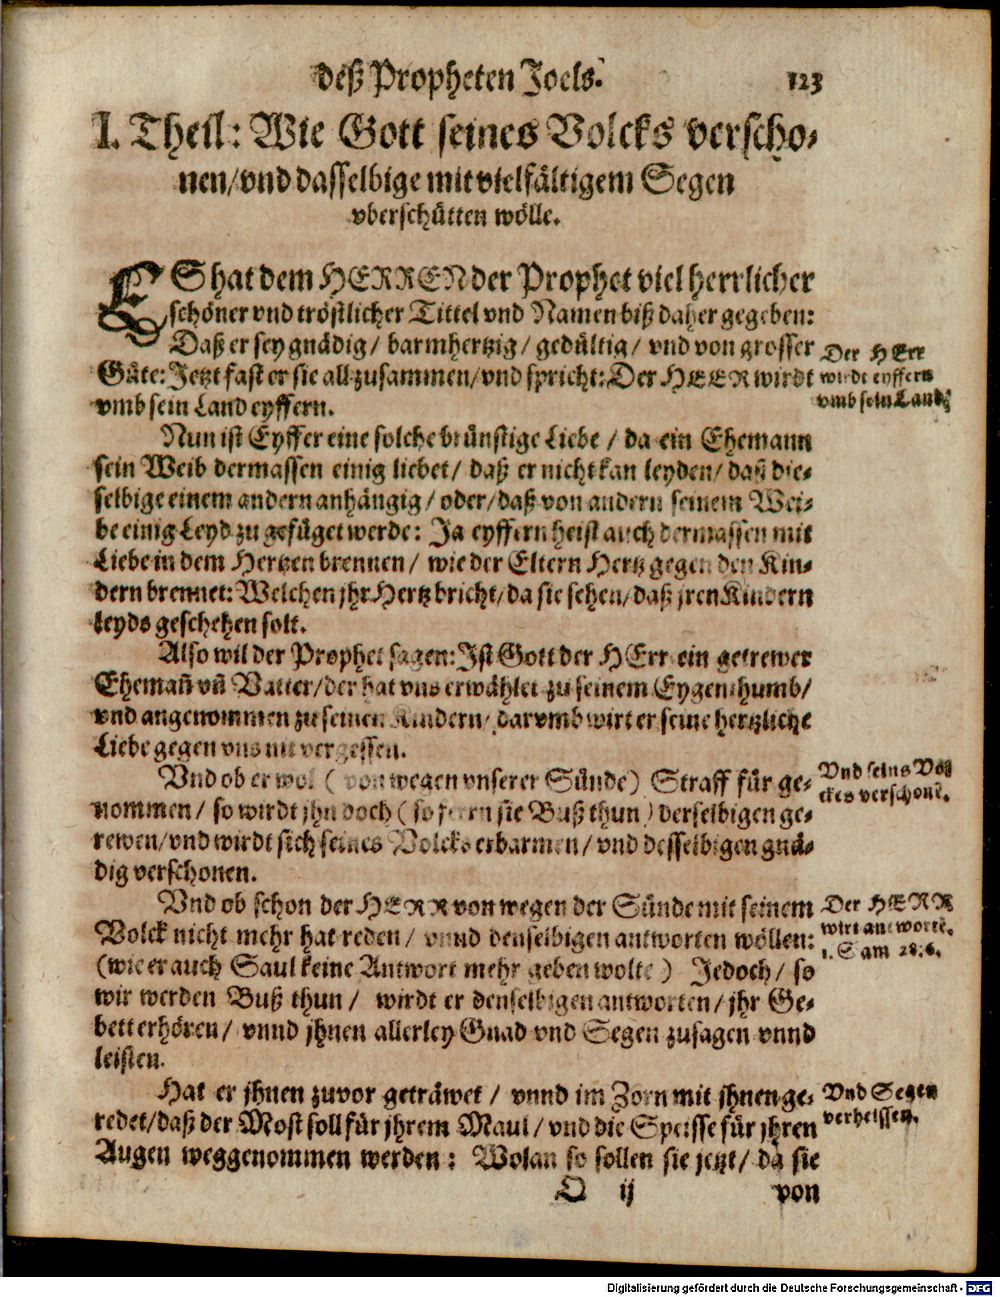 deß Propheten Joels. 123
I. Theil: Wie Gott seines Volcks verscho-
nen/vnd dasselbige mit vielfältigem Segen
vberschütten wölle.
ES hat dem HERREN der Prophet viel herrlicher
schöner vnd tröstlicher Tittel vnd Namen biß daher gegeben:
Daß er sey gnädig/ barmhertzig/ gedültig/ vnd von grosser
Güte: Jetzt fast er sie all zusammen/vnd spricht: Der HERR wirdt
vmb sein Land eyffern.
Der HErr
wirdt eyffern
vmb sein Land.
Nun ist Eyffer eine solche brünstige Liebe / da ein Ehemann
sein Weib dermassen einig liebet/ daß er nicht kan leyden/ daß die-
selbige einem andern anhängig/ oder/ daß von andern seinem Wei-
be einig Leyd zu gefüget werde: Ja eyffern heist auch dermassen mit
Liebe in dem Hertzen brennen/ wie der Eltern Hertz gegen den Kin-
dern brennet: Welchen jhr Hertz bricht/ da sie sehen/ daß jren Kindern
leyds geschehen solt.
Also wil der Prophet sagen: Ist Gott der HErr ein getrewer
Ehemañ vñ Vatter/der hat vns erwählet zu seinem Eygenthumb/
vnd angenommen zu seinen Kindern/ darumb wirt er seine hertzliche
Liebe gegen vns nit vergessen.
Vnd ob er wol ( von wegen vnserer Sünde) Straff für ge-
nommen / so wirdt jhn doch ( so fern sie Buß thun ) derselbigen ge-
rewen/vnd wirdt sich seines Volcks erbarmen/ vnd desselbigen gnä-
dig verschonen.
Vnd seins Vol
ckes verschone.
Vnd ob schon der HERR von wegen der Sünde mit seinem
Volck nicht mehr hat reden/ vnnd denselbigen antworten wöllen:
(wie er auch Saul keine Antwort mehr geben wolte ) Jedoch/ so
wir werden Buß thun/ wirdt er denselbigen antworten/ jhr Ge-
bett erhören/ vnnd jhnen allerley Gnad vnd Segen zusagen vnnd
leisten.
Der HERR
wirt antworte.
1. Sam 28.6.
Hat er jhnen zuvor geträwet / vnnd im Zorn mit jhnen ge-
redet/daß der Most soll für jhrem Maul/ vnd die Speisse für jhren
Augen weggenommen werden: Wolan so sollen sie jetzt/ da sie
Vnd Segen
verheissen.
Q ij von
Digitalisierung gefördert durch die Deutsche Forschungsgemeinschaft - DFG